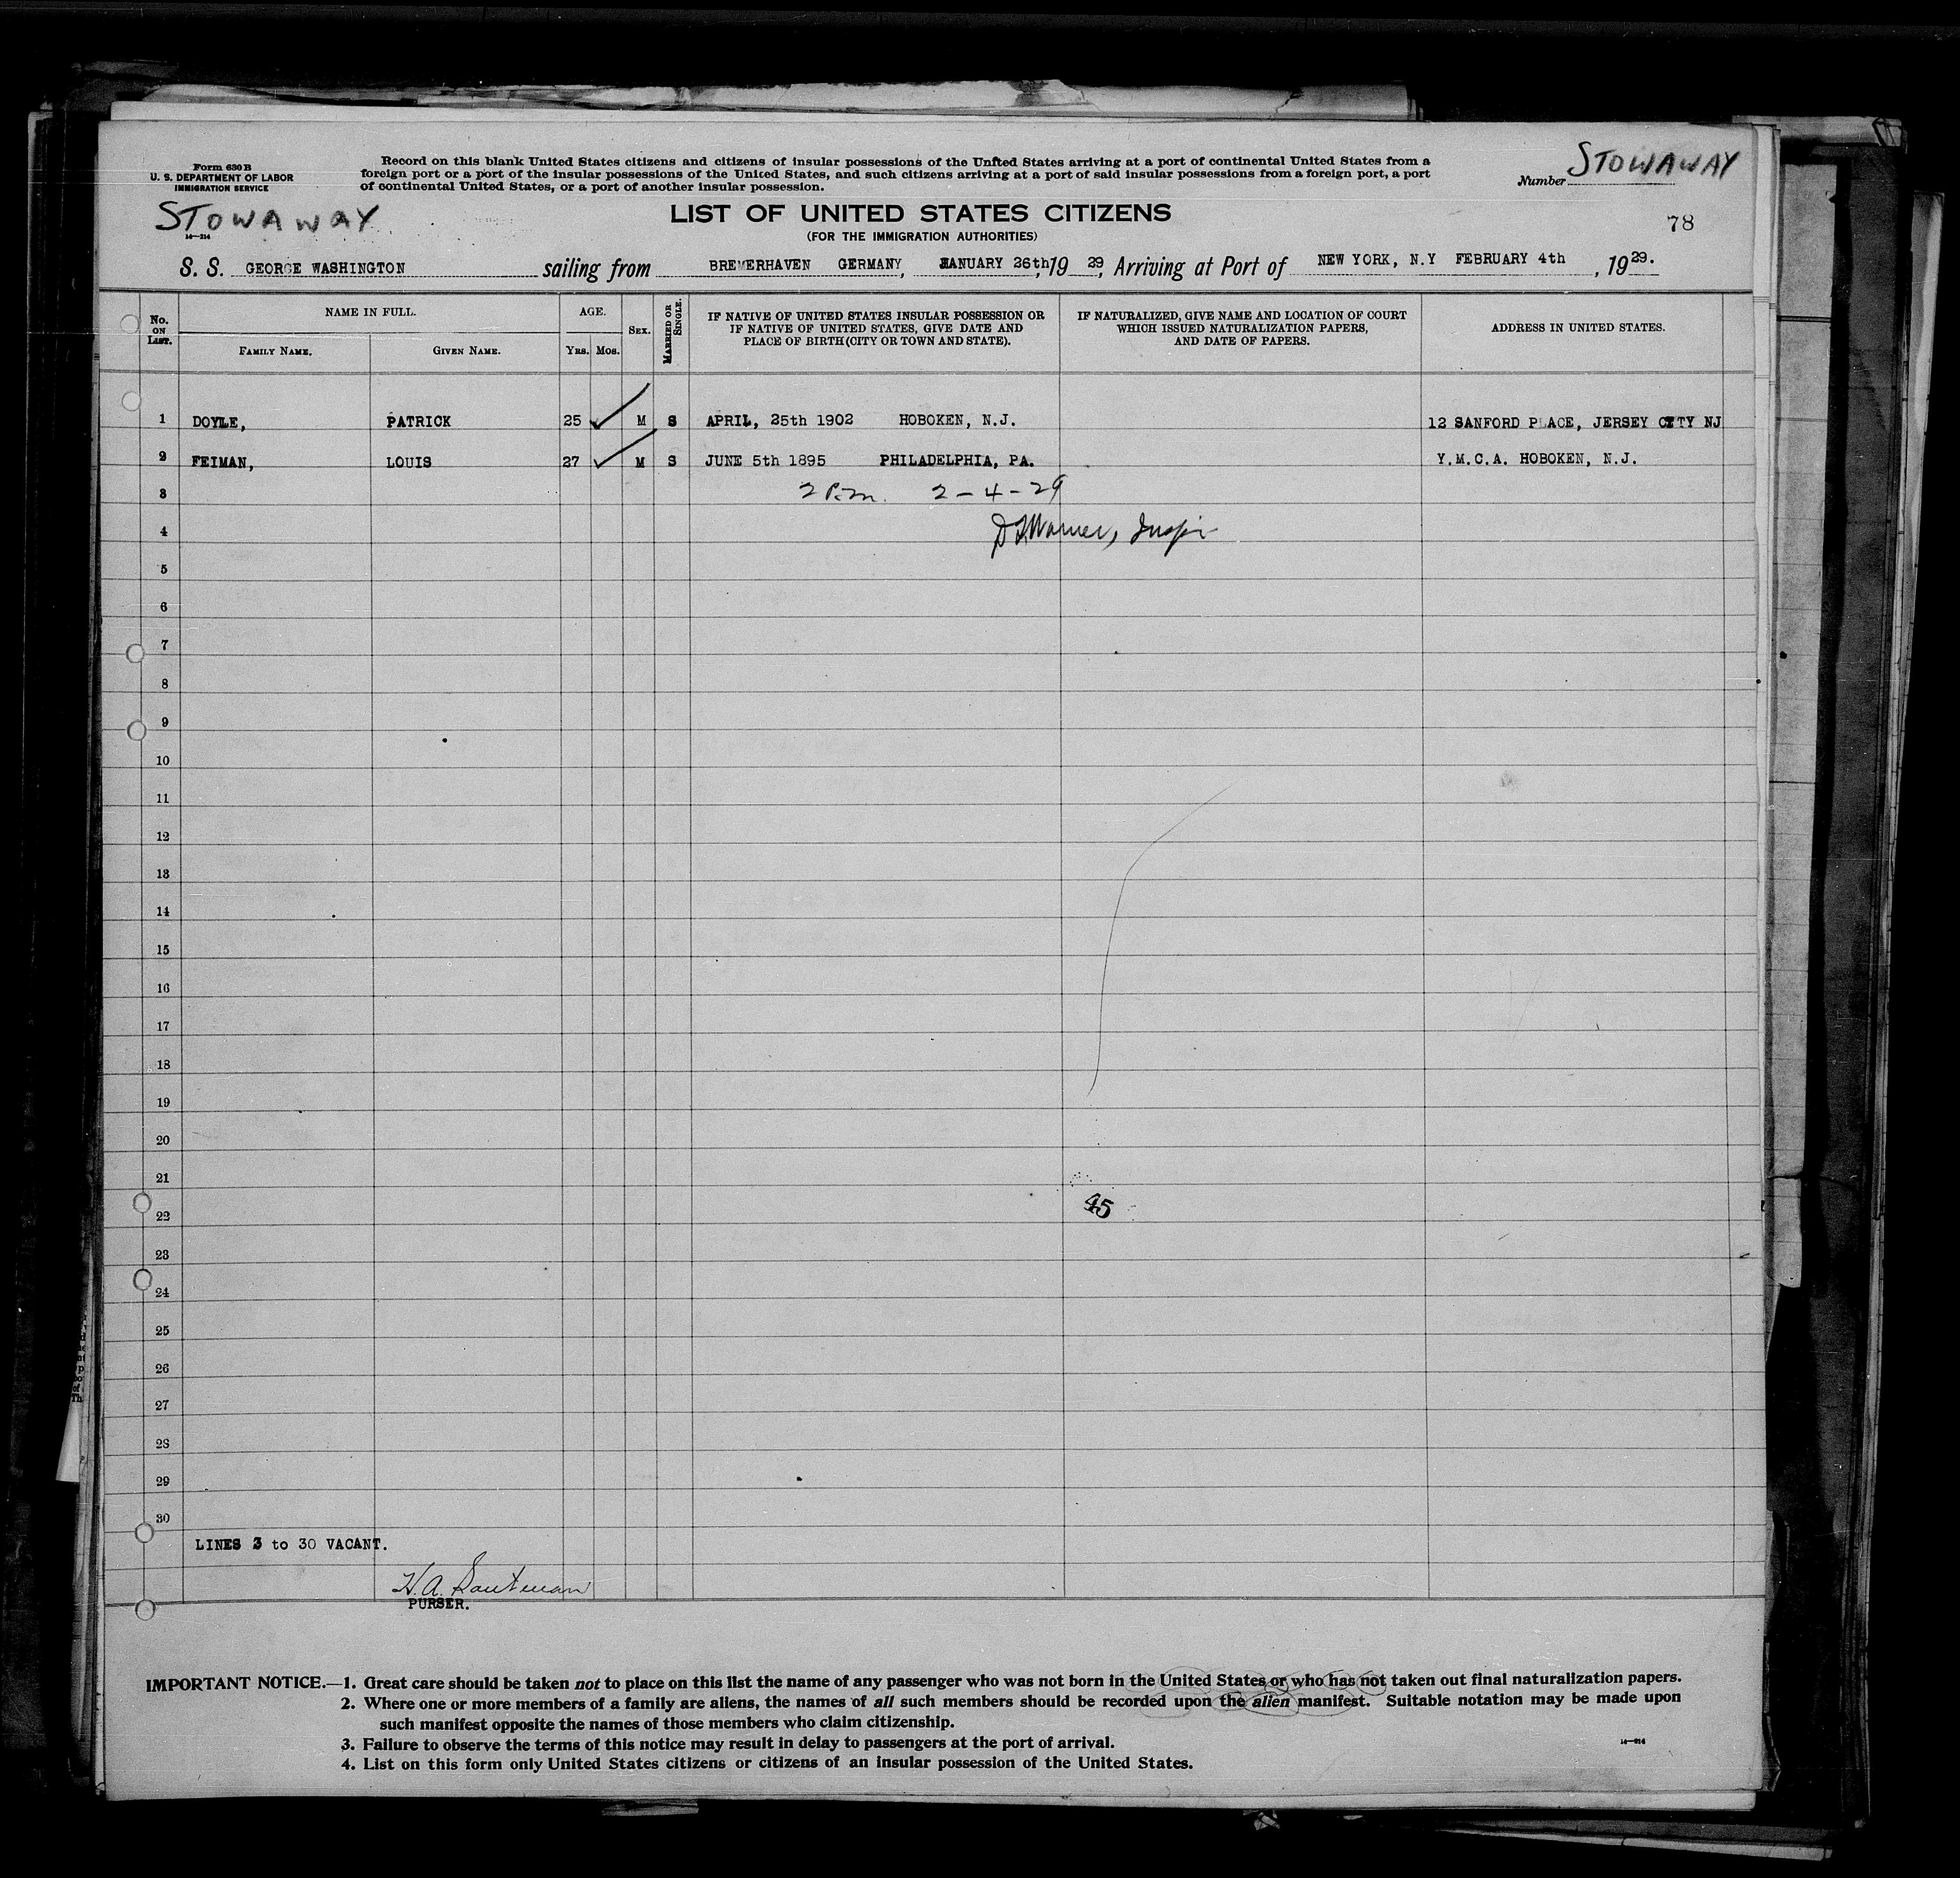 Form 630 B
U. S. DEPARTMENT OF LABOR
IMMIGRATION SERVICE
Record on this blank United States citizens and citizens of insular possessions of the United States arriving at a port of continental United States from a
foreign port or a port of the insular possessions of the United States, and such citizens arriving at a port of said insular possessions from a foreign port, a port
of continental United States, or a port of another insular possession.
Number STOWAWAY
STOWAWAY
14—214
LIST OF UNITED STATES CITIZENS
(FOR THE IMMIGRATION AUTHORITIES)
78
S. S. GEORGE WASHINGTON sailing from BREMERHAVEN GERMANY, JANUARY 26th, 19 29, Arriving at Port of NEW YORK, N.Y FEBRUARY 4th, 19 29.
No. ON LIST.
NAME IN FULL.
FAMILY NAME.
GIVEN NAME.
AGE.
YRS. MOS.
SEX.
MARRIED OR SINGLE.
IF NATIVE OF UNITED STATES INSULAR POSSESSION OR
IF NATIVE OF UNITED STATES, GIVE DATE AND
PLACE OF BIRTH (CITY OR TOWN AND STATE).
IF NATURALIZED, GIVE NAME AND LOCATION OF COURT
WHICH ISSUED NATURALIZATION PAPERS,
AND DATE OF PAPERS.
ADDRESS IN UNITED STATES.
1 DOYLE, PATRICK 25 ✓ M S APRIL, 25th 1902 HOBOKEN, N.J. 12 SANFORD PLACE, JERSEY CITY NJ
2 FEIMAN, LOUIS 27 ✓ M S JUNE 5th 1895 PHILADELPHIA, PA. Y.M.C.A. HOBOKEN, N.J.
3 2 P.m. 2-4-29
4 Warner, Inspr
5
6
7
8
9
10
11
12
13
14
15
16
17
18
19
20
21
22 45
23
24
25
26
27
28
29
30
LINES 3 to 30 VACANT.
H.A. Sautman
PURSER.
IMPORTANT NOTICE.—1. Great care should be taken not to place on this list the name of any passenger who was not born in the United States or who has not taken out final naturalization papers.
2. Where one or more members of a family are aliens, the names of all such members should be recorded upon the alien manifest. Suitable notation may be made upon
such manifest opposite the names of those members who claim citizenship.
3. Failure to observe the terms of this notice may result in delay to passengers at the port of arrival.
4. List on this form only United States citizens or citizens of an insular possession of the United States.
14—214